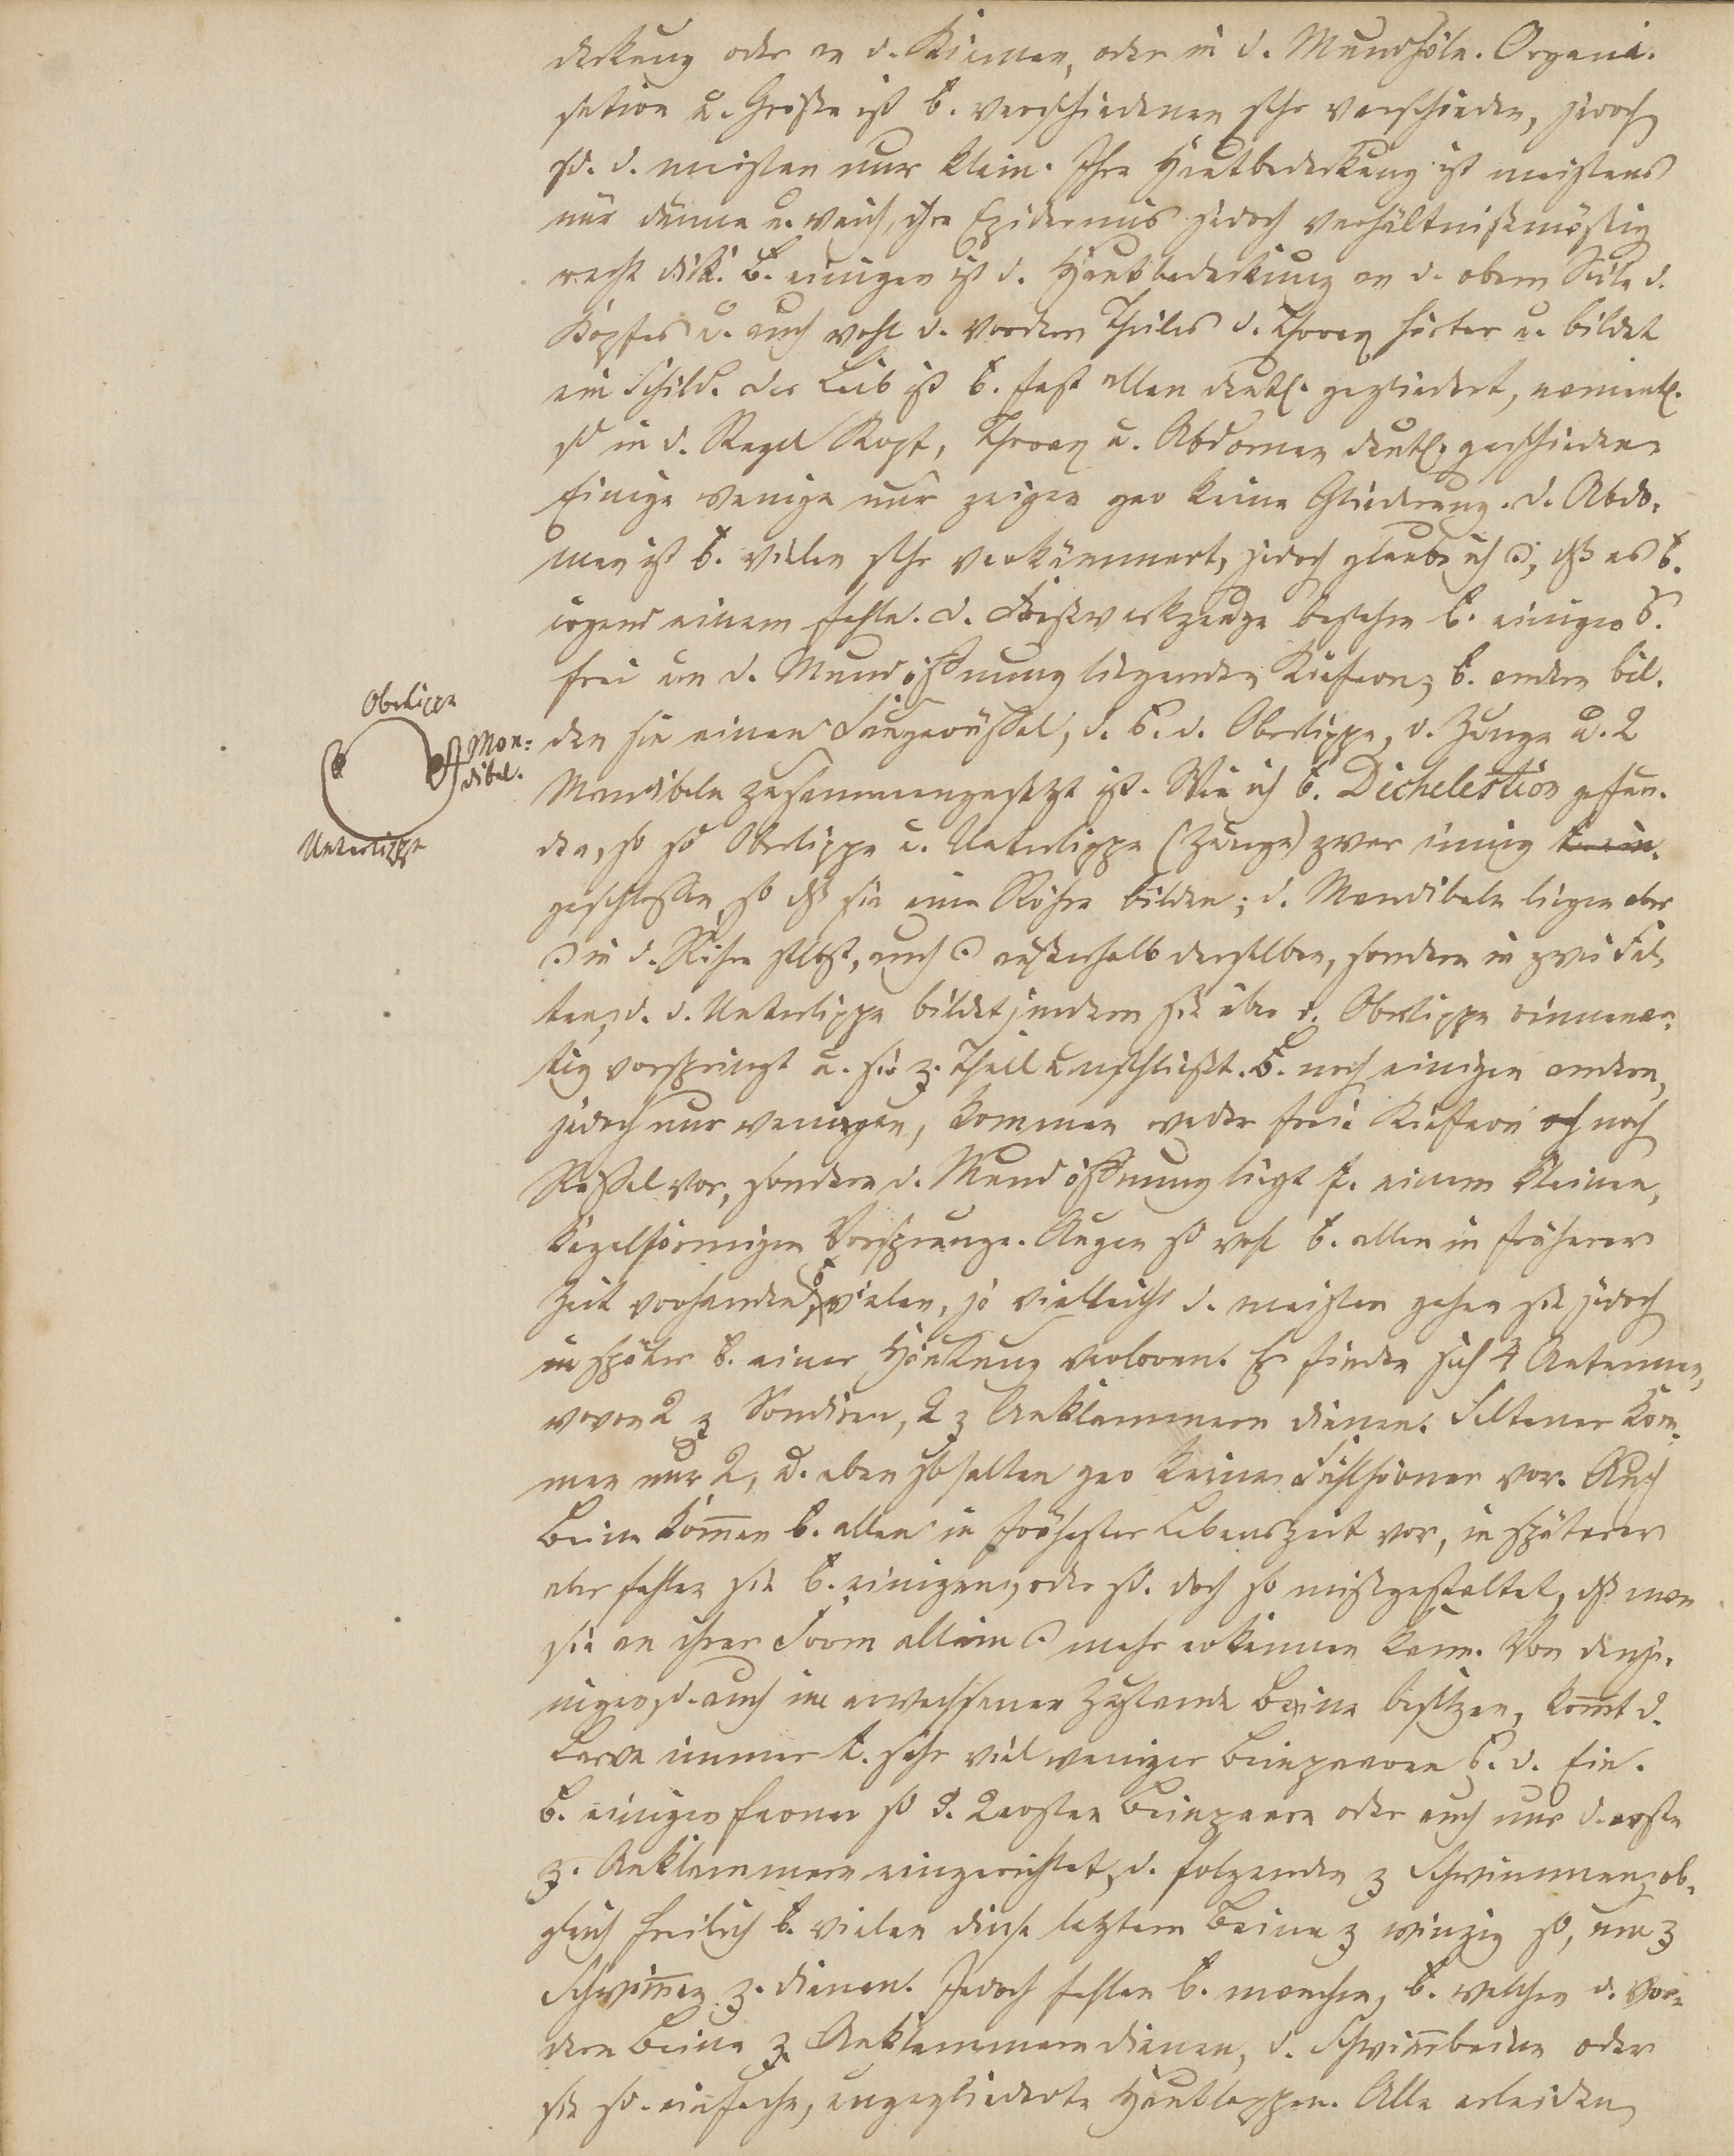 deckung oder an d. Kiemen, oder in d. Mundhöle. Organi-
sation u. Größe ist b. verschiedenen sehr verschieden, jedoch
sd. d. meisten nur klein. Ihre Hautbedeckung ist meistens
nur dünne u. weich, ihre Epidermis jedoch verhältnißmäßig
recht dick. B. einigen ist d. Hautbedeckung an d. obern Seite d.
Kopfes u. auch wohl d. vordern Theiles d. Thorax härter u. bildet
ein Schild. Der Leib ist b. fast allen deutl. gegliedert, namentl.
sd in d. Regel Kopf, Thorax u. Abdomen deutl. geschieden.
Einige wenige nur zeigen gar keine Gliederung. D. Abdo-
men ist b. vielen sehr verkümmert, jedoch glaube ich, dß es b.
irgend einem fehle. D. Freßwerkzeuge bestehen b. einigen
frei um d. Mundöffnung liegenden Kiefern; b. andern bil-
den sie einen Saugrüssel, d. d. Oberlippe, d. Zunge u. 2
Mandibeln zusammengesetzt ist. Wie ich b. Dichelestion gefun-
den, so sd Oberlippe u. Unterlippe (Zunge) zwar innig
geschlossen, so dß sie eine Röhre bilden; d. Mandibeln liegen aber
in d. Röhre selbst, auch außerhalb derselben, sondern in zwei Fal-
ten, d. d. Unterlippe bildet, indem sie über d. Oberlippe rinnenar-
tig vorspringt u. sie z. Theil umschließt. B. noch einigen andern,
jedoch nur wenigen, kommen weder freie Kiefern noch
Rüssel vor, sondern d. Mundöffnung liegt f. einem kleinen,
kegelförmigen Vorsprunge. Augen sd wohl b. allen in früherer
Zeit vorhanden, b. vielen, ja vielleicht d. meisten gehen sie jedoch
in später b. einer Häutung verloren. Es finden sich 4 Antennen,
wovon 2 z Sondiren, 2 z Anklammern dienen. Seltener kom-
men nur 2, u. eben so selten gar keine Fühlhörner vor. Auch
Beine kom̄en b. allen in frühester Lebenszeit vor, in späterer
aber fehlen sie b. einigen, oder sd. doch so mißgestaltet, dß man
sie an ihrer Form allein mehr erkennen kann. Von denje-
nigen, d. auch im erwachsenen Zustande Beine besitzen, kom̄t d.
Larve immer t. sehr viel weniger Beinpaaren d. Ei.
B. einigen ferner sd d. 2 ersten Beinpaare oder auch nur d. erste
z. Anklammern eingerichtet, d. folgenden z Schwimmen, ob-
gleich freilich b. vielen diese letztern Beine z winzig sd, um z
Schwim̄en z. dienen. Jedoch fehlen b. manchen, b. welchen d. vor-
dern Beine z Anklammern dienen, d. Schwim̄beine oder
sie sd. einfache, ungegliederte Hautlappen. Alle erleiden
Oberlippe
Man-
dibel.
Unterlippe